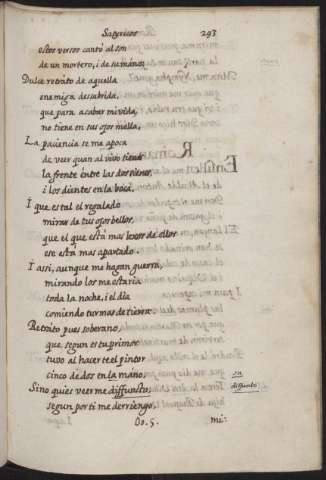 Satyricos 293
estos versos cantó al son
de un mortero, i de su mano:
Dulce retrato de aquella
enemiga desabrida,
que para acabar mi vida,
no tiene en sus ojos mella,
La paciencia se me apoca
de ver quan al vivo tienes
la frente entre las dos sienes,
i los dientes en la boca.
I que es tal el regalado
mirar de tus ojos bellos,
que el que està mas lexos de ellos
esse està mas apartado.
I assi, aunque me hagan guerra,
mirando los me estaria
toda la noche, i el dia
comiendo turmas de tierra.
Retrato pues soberano,
que segun es tu primor
tuvo al hacerte el pintor
cinco dedos en la mano,
su
diffunto
Sino quies verme diffuncto,
segun por ti me derriengo,
Oo. 5. me: